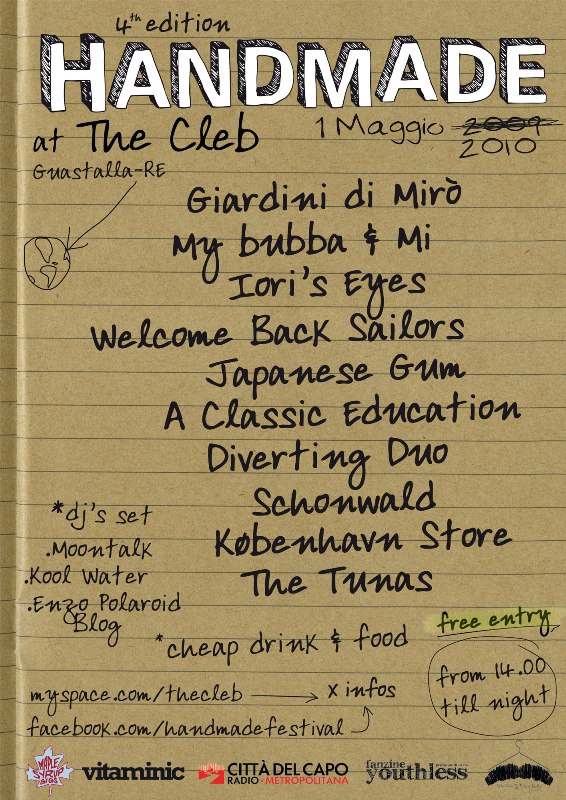 4th edition
HANDMADE
at The Cleb
1 Maggio 2009
2010
Guastalla-RE
Giardini di Mirò
My bubba & Mi
Iori's Eyes
Welcome Back Sailors
Japanese Gum
A Classic Education
Diverting Duo
Schonwald
København Store
The Tunas
*dj's set
.Moontalk
.Kool Water
.Enzo Polaroid
Blog
*cheap drink & food
free entry
from 14.00
till night
myspace.com/thecleb → x infos
facebook.com/handmadefestival
MAPLE
SYRUP
vitaminic
CITTÀ DEL CAPO
RADIO METROPOLITANA
fanzine
youthless